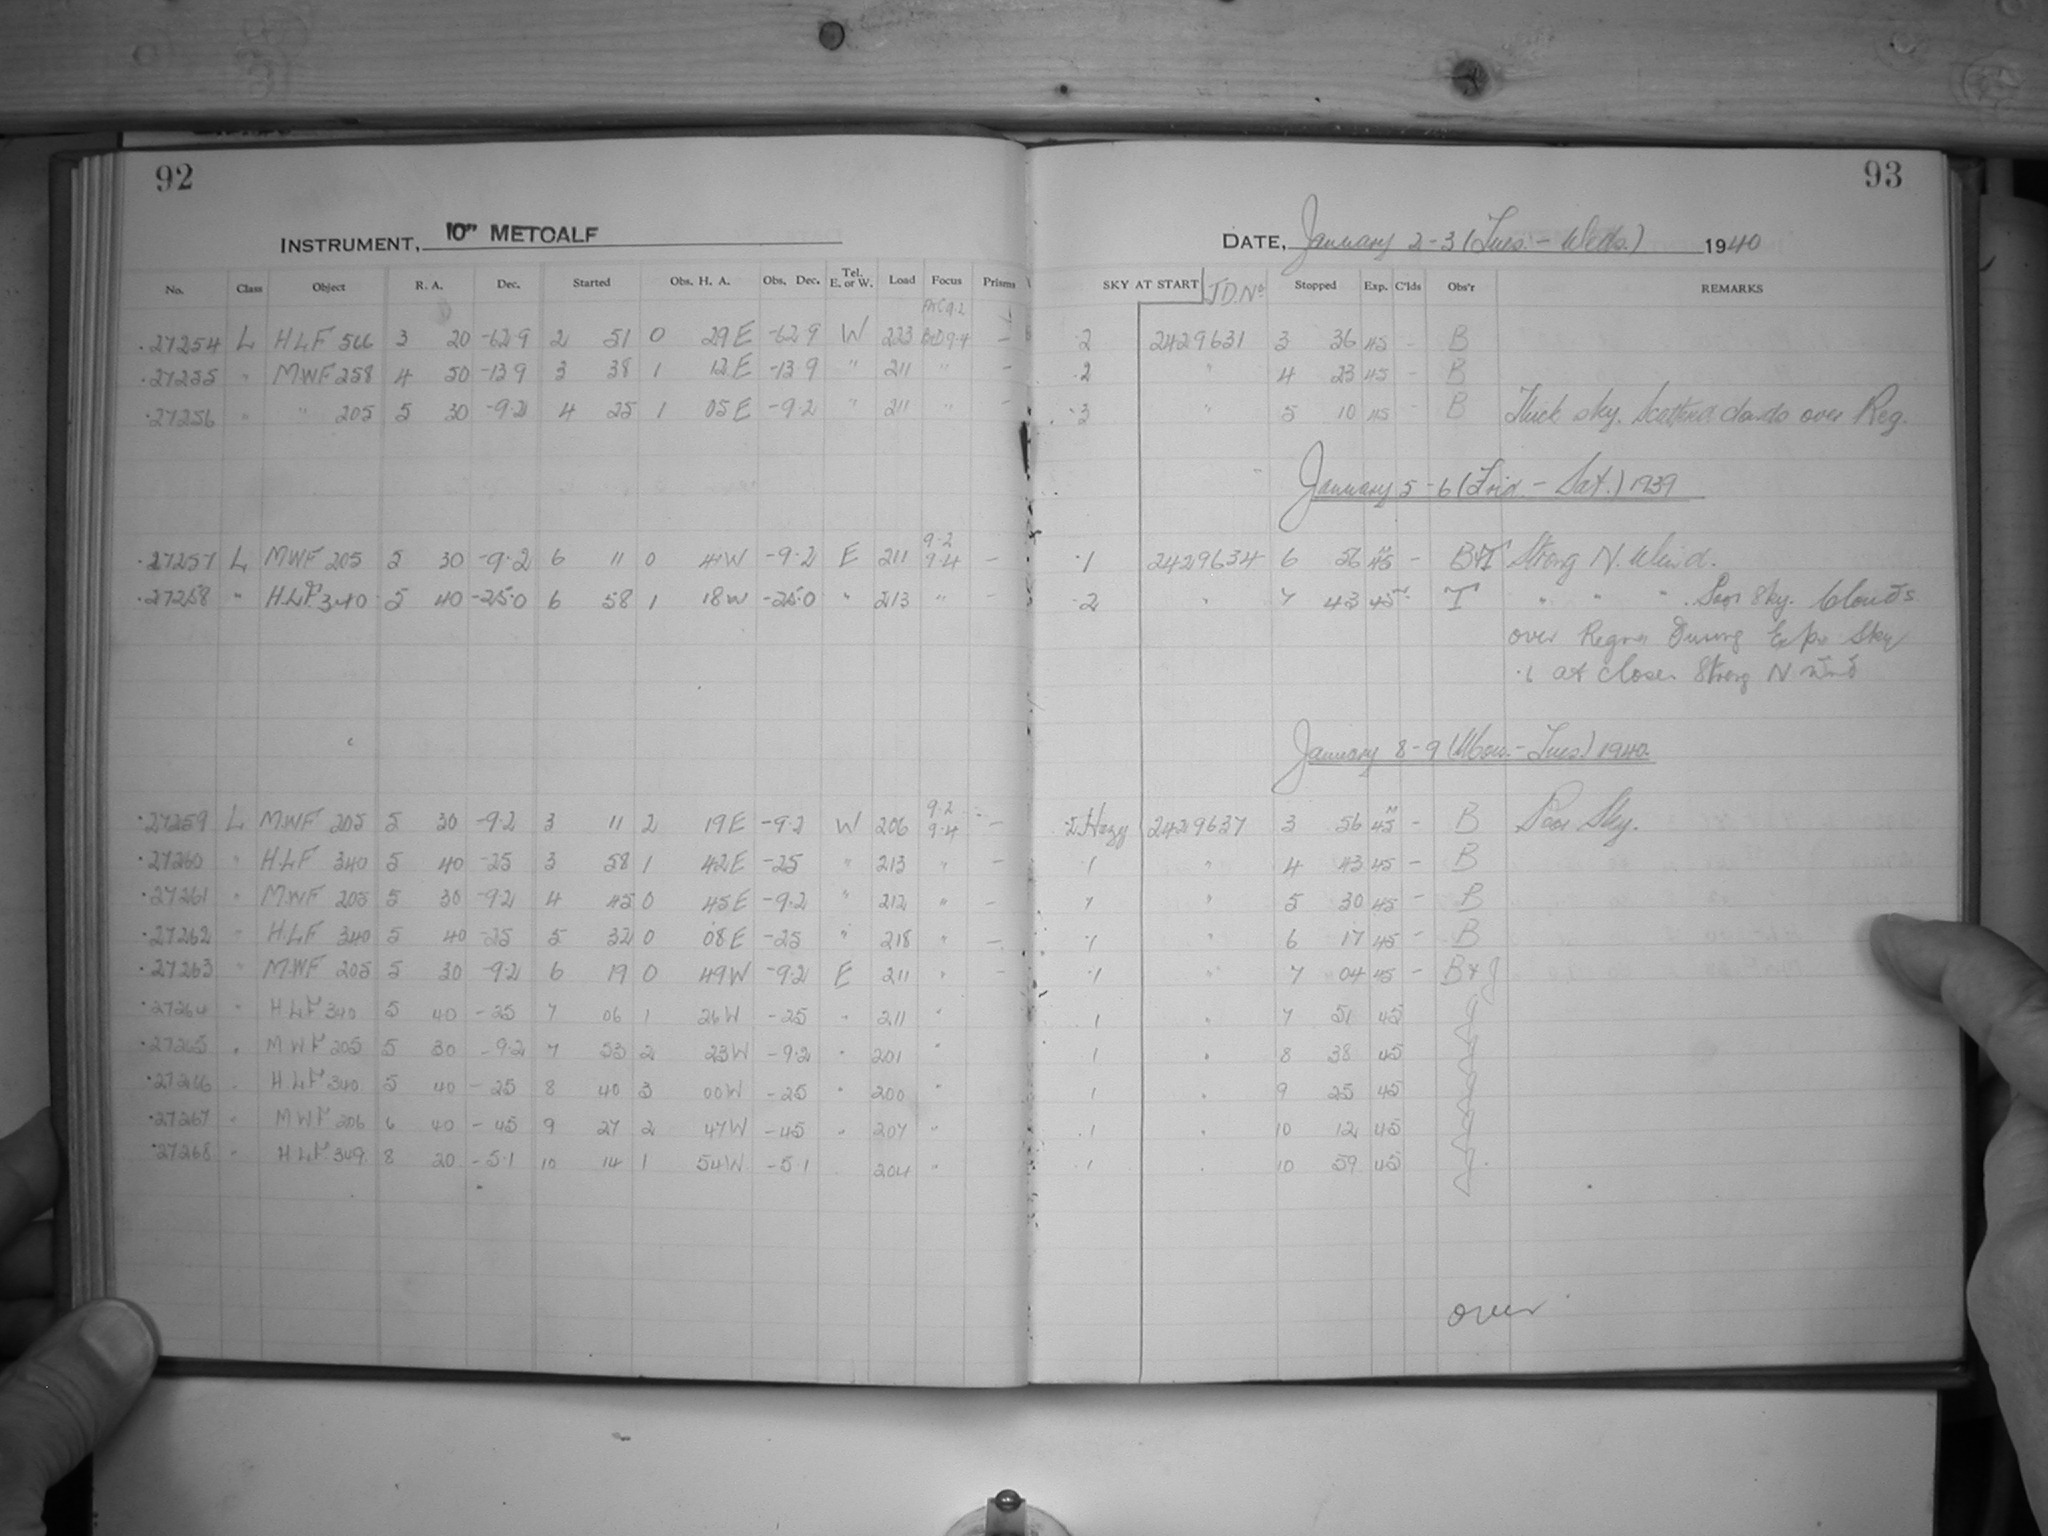 92
INSTRUMENT, 10" METCALF
No. Class Object R. A. Dec. Started Obs. H. A. Obs. Dec. Tel. E. or W. Load Focus Prisms
27254 L HLF 566 3 20 -62.9 2 51 0 29E -62.9 W 223 9.2 9.4 -
27255 " MWF 258 4 50 -13.9 3 38 1 12E -13.9 " 211 " -
27256 " " 205 5 30 -9.2 4 25 1 05E -9.2 " 211 " -
27257 L MWF 205 5 30 -9.2 6 11 0 41W -9.2 E 211 9.2 9.4 -
27258 " HLF 340 5 40 -25.0 6 58 1 18W -25.0 " 213 " -
27259 L MWF 205 5 30 -9.2 3 11 2 19E -9.2 W 206 9.2 9.4 -
27260 " HLF 340 5 40 -25 3 58 1 42E -25 " 213 " -
27261 " MWF 205 5 30 -9.2 4 45 0 45E -9.2 " 212 " -
27262 " HLF 340 5 40 -25 5 32 0 08E -25 " 218 " -
27263 " MWF 205 5 30 -9.2 6 19 0 49W -9.2 E 211 " -
27264 " HLF 340 5 40 -25 7 06 1 26W -25 " 211 "
27265 " MWF 205 5 30 -9.2 7 53 2 23W -9.2 " 201 "
27266 " HLF 340 5 40 -25 8 40 3 00W -25 " 200 "
27267 " MWF 206 6 40 -45 9 27 2 47W -45 " 207 "
27268 " HLF 349 8 20 -51 10 14 1 54W -51 204 "
93
DATE, January 2-3 (Tues. - Weds.) 1940
SKY AT START J.D. No. Stopped Exp. C'lds Obs'r REMARKS
2 2429631 3 36 45 - B
2 " 4 23 45 - B
3 " 5 10 45 - B Thick sky. Scattered clouds over Reg.
January 5-6 (Frid. - Sat.) 1939
1 2429634 6 56 45 - B+T Strong N. Wind.
2 " 7 43 45 T " " " Poor Sky. Clouds
over Region During Exp. Sky
at close. Strong N wind
January 8-9 (Mon. - Tues.) 1940
Hazy 2429637 3 56 45 - B Poor Sky.
1 " 4 43 45 - B
1 " 5 30 45 - B
1 " 6 17 45 - B
1 " 7 04 45 - B+J
1 " 7 51 45 J
1 " 8 38 45 J
1 " 9 25 45 J
1 " 10 12 45 J
1 10 59 45 J
over